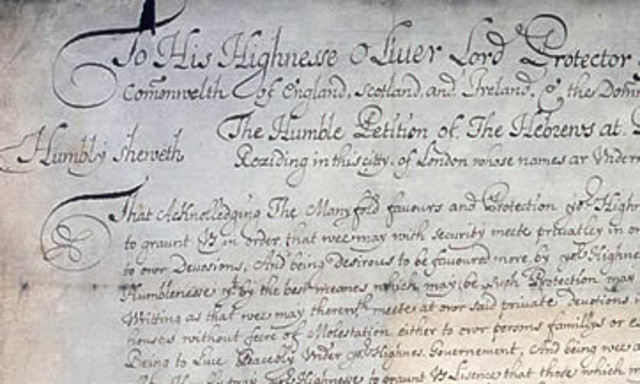 To His Highnesse Oliver Lord Protector
Comonwelth of England, Scotland, and Ireland, & the Dom
The Humble Petition of The Hebrews at
Humbly sheweth
Reziding in this citty of London whose names ar Vnder
That Acknolledging The Manyfold favours and Protection yor High
to graunt Vs in order that wee may with security meete privatley in
to owr Devosions, And being Desirous to be favoured more by yor Highne
Humblenesse yt by the best meanes which may be such Protection may
Writting as that wee may therewth meete at owr said private Devotions
houses without feere of Molestation either to owr persons famillys or
Being to Live Peacebly Vnder yor Highnes Governement, And being wee
yor Highnesse to graunt Vs Lisence that those which